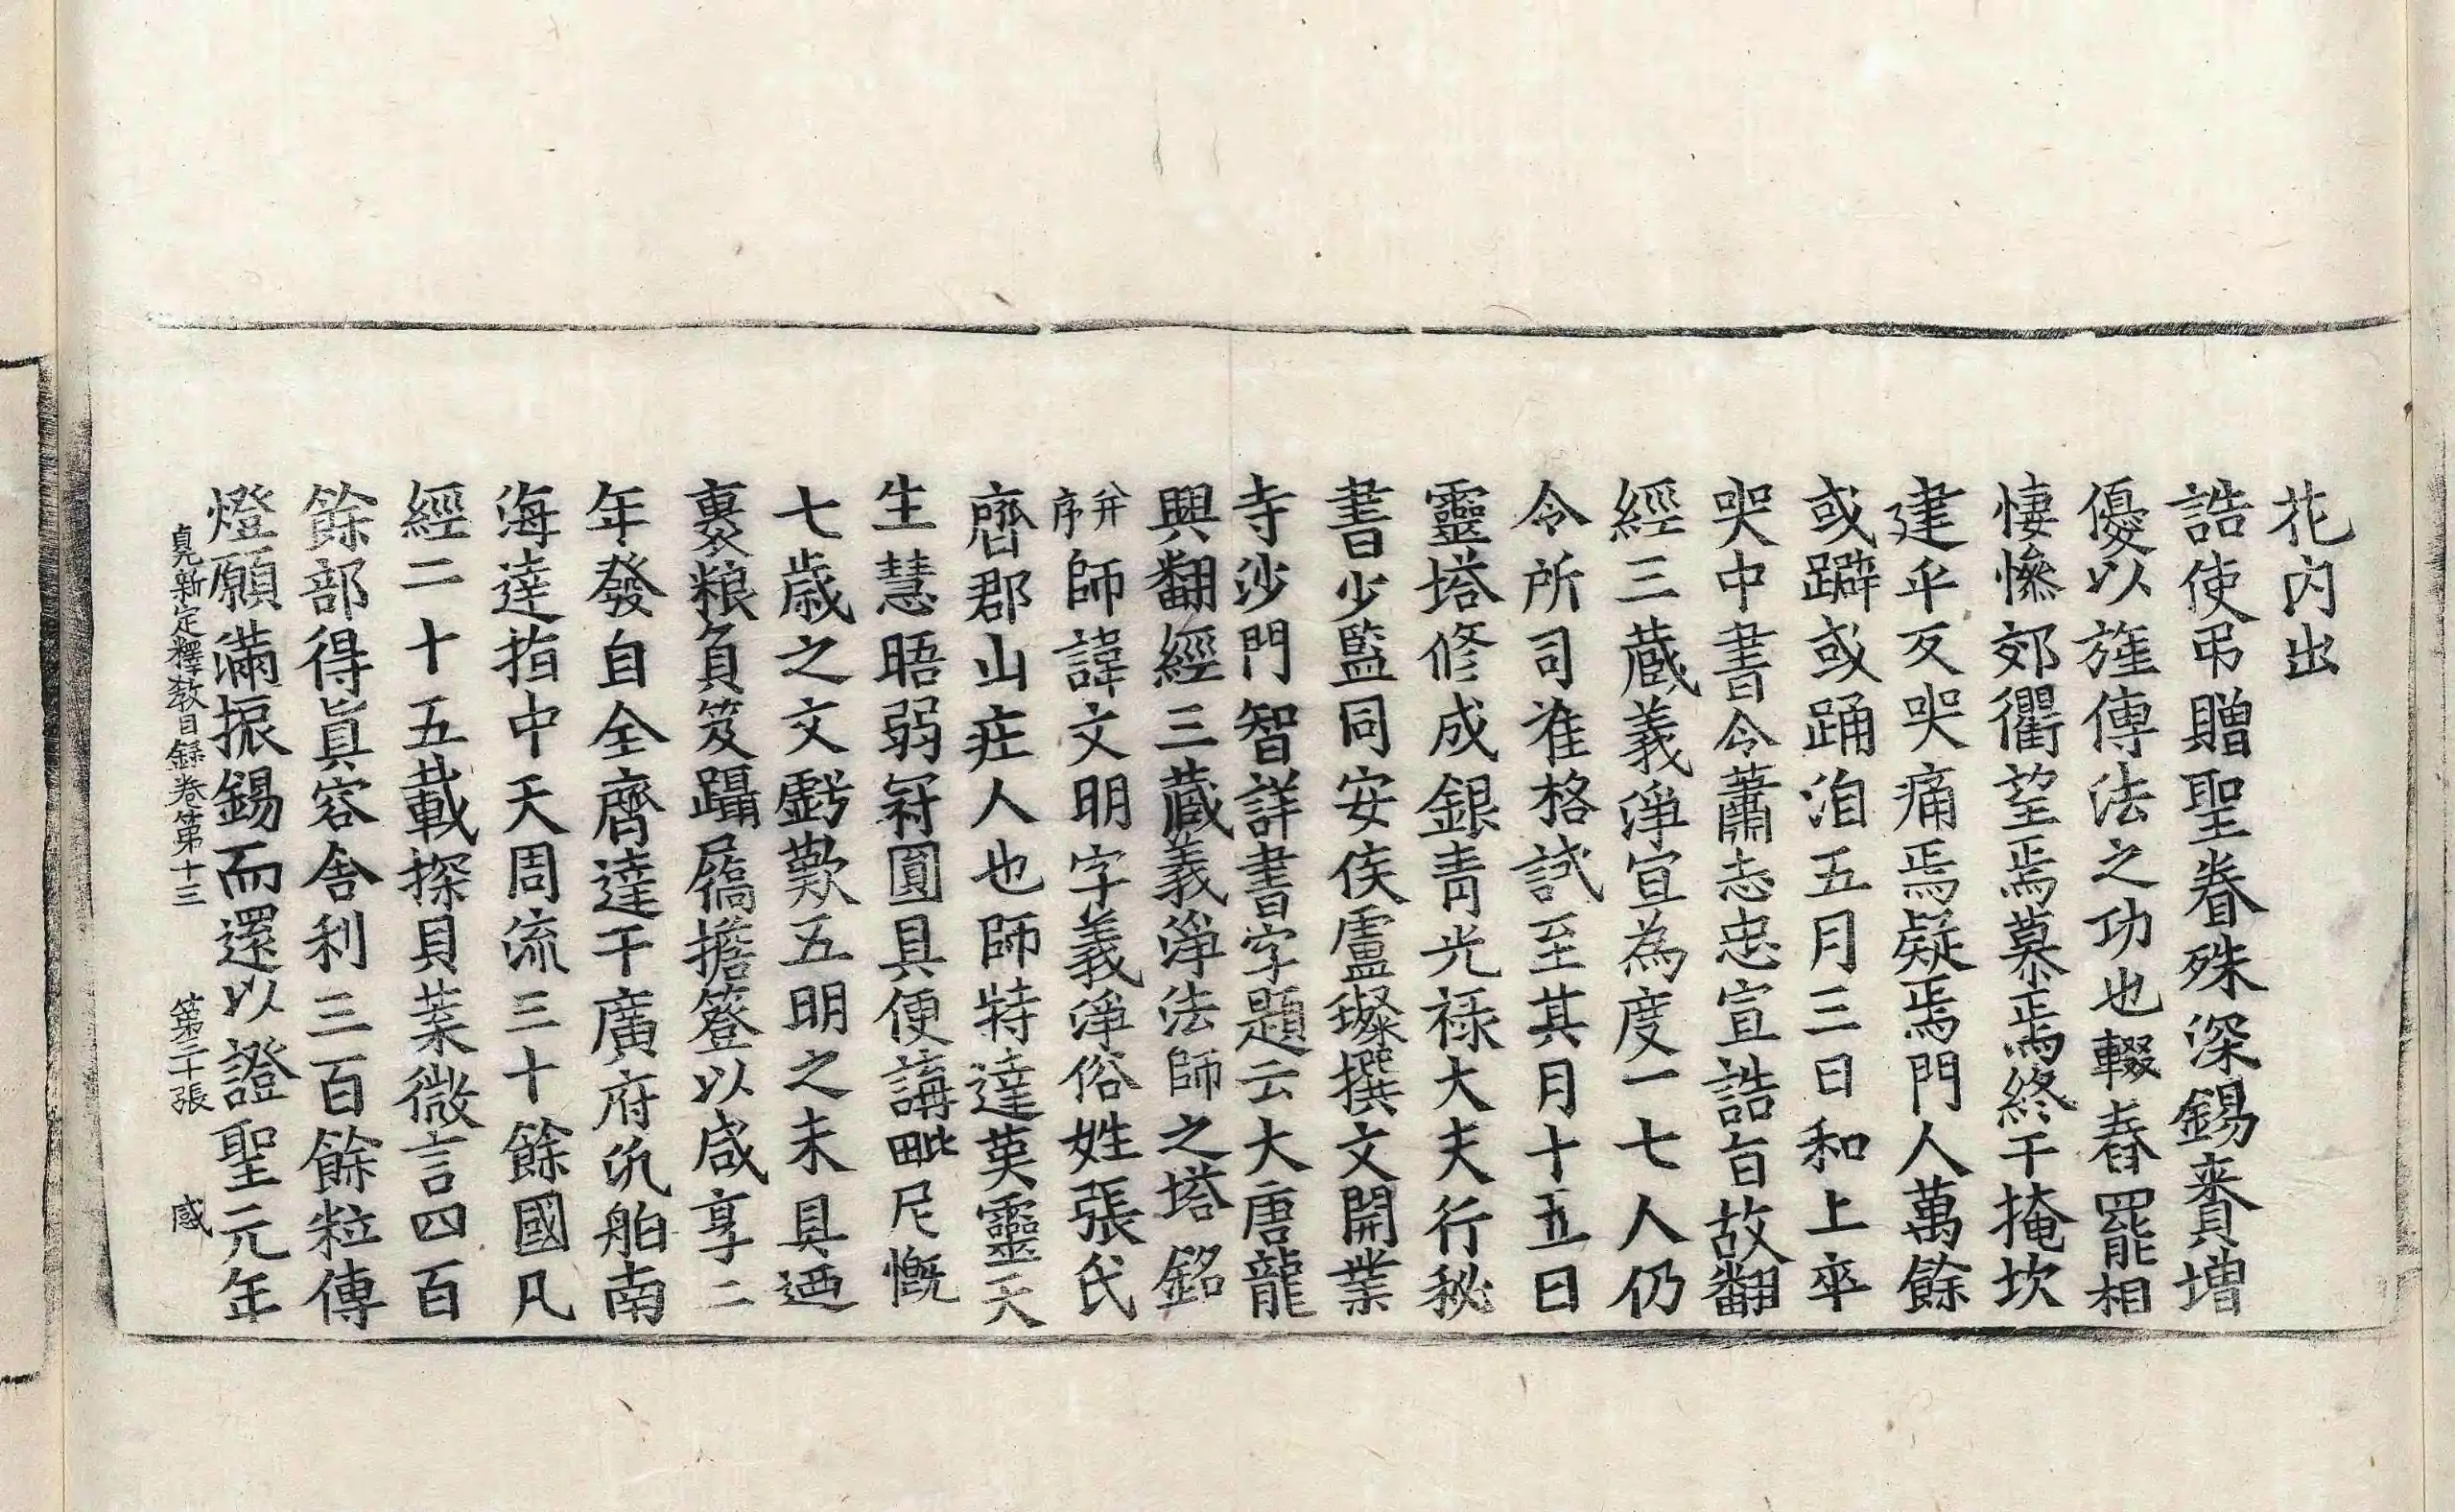 花內出
誥使弔贈聖眷殊深錫賚增
優以旌傳法之功也輟舂罷相
悽慘郊衢望焉慕焉終于掩坎
建乎反哭痛焉凝焉門人萬餘
或躃或踊洎五月三日和上卒
哭中書令蕭志忠宣誥旨故翻
經三藏義淨宜為度一七人仍
令所司准格試至其月十五日
靈塔修成銀青光祿大夫行秘
書少監同安侯盧璨撰文開業
寺沙門智詳書字題云大唐龍
興翻經三藏義淨法師之塔銘
并序師諱文明字義淨俗姓張氏
齊郡山莊人也師特達英靈天
生慧晤弱冠圓具便講毗尼慨
七歲之文虧歎五明之未具迺
裹粮負笈躡屩擔簦以咸享二
年發自全齊達于廣府汎舶南
海達指中天周流三十餘國凡
經二十五載探貝葉微言四百
餘部得真容舍利三百餘粒傳
燈願滿振錫而還以證聖元年
貞元新定釋教目錄卷第十三 第二十張 感